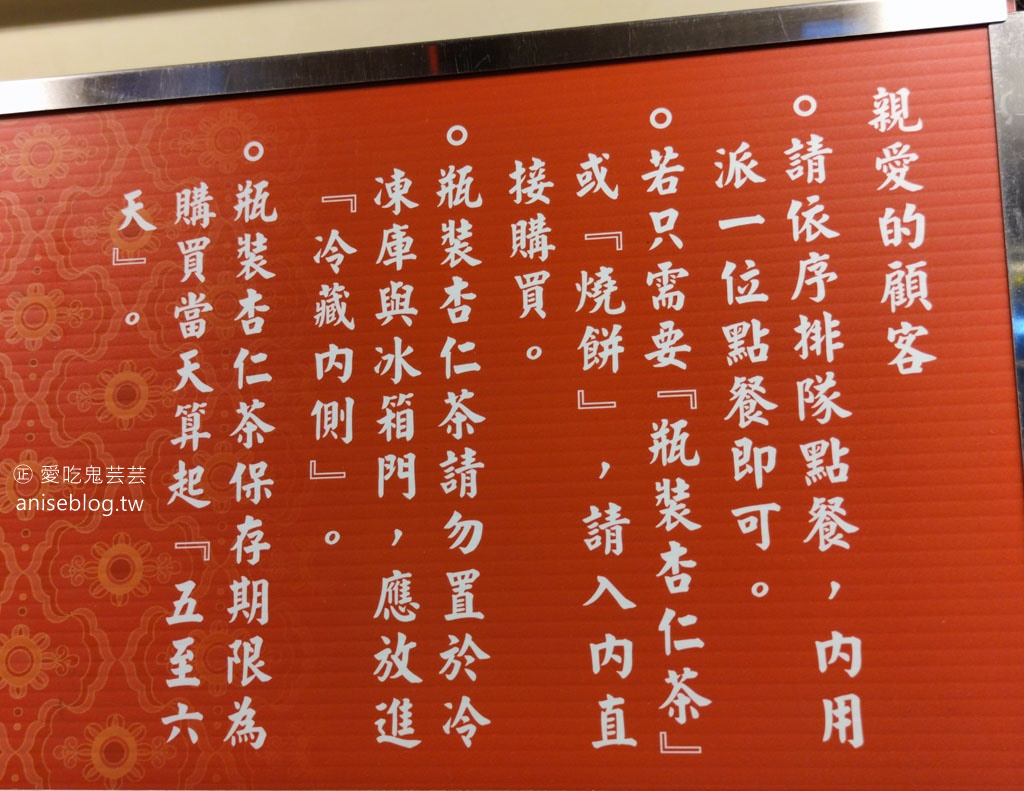 親愛的顧客
。請依序排隊點餐，内用
派一位點餐即可。
。若只需要『瓶裝杏仁茶』
或『燒餅』，請入内直
接購買。
。瓶裝杏仁茶請勿置於冷
凍庫與冰箱門，應放進
『冷藏内側』。
。瓶裝杏仁茶保存期限為
購買當天算起『五至六
天』。
㊣ 愛吃鬼芸芸
aniseblog.tw